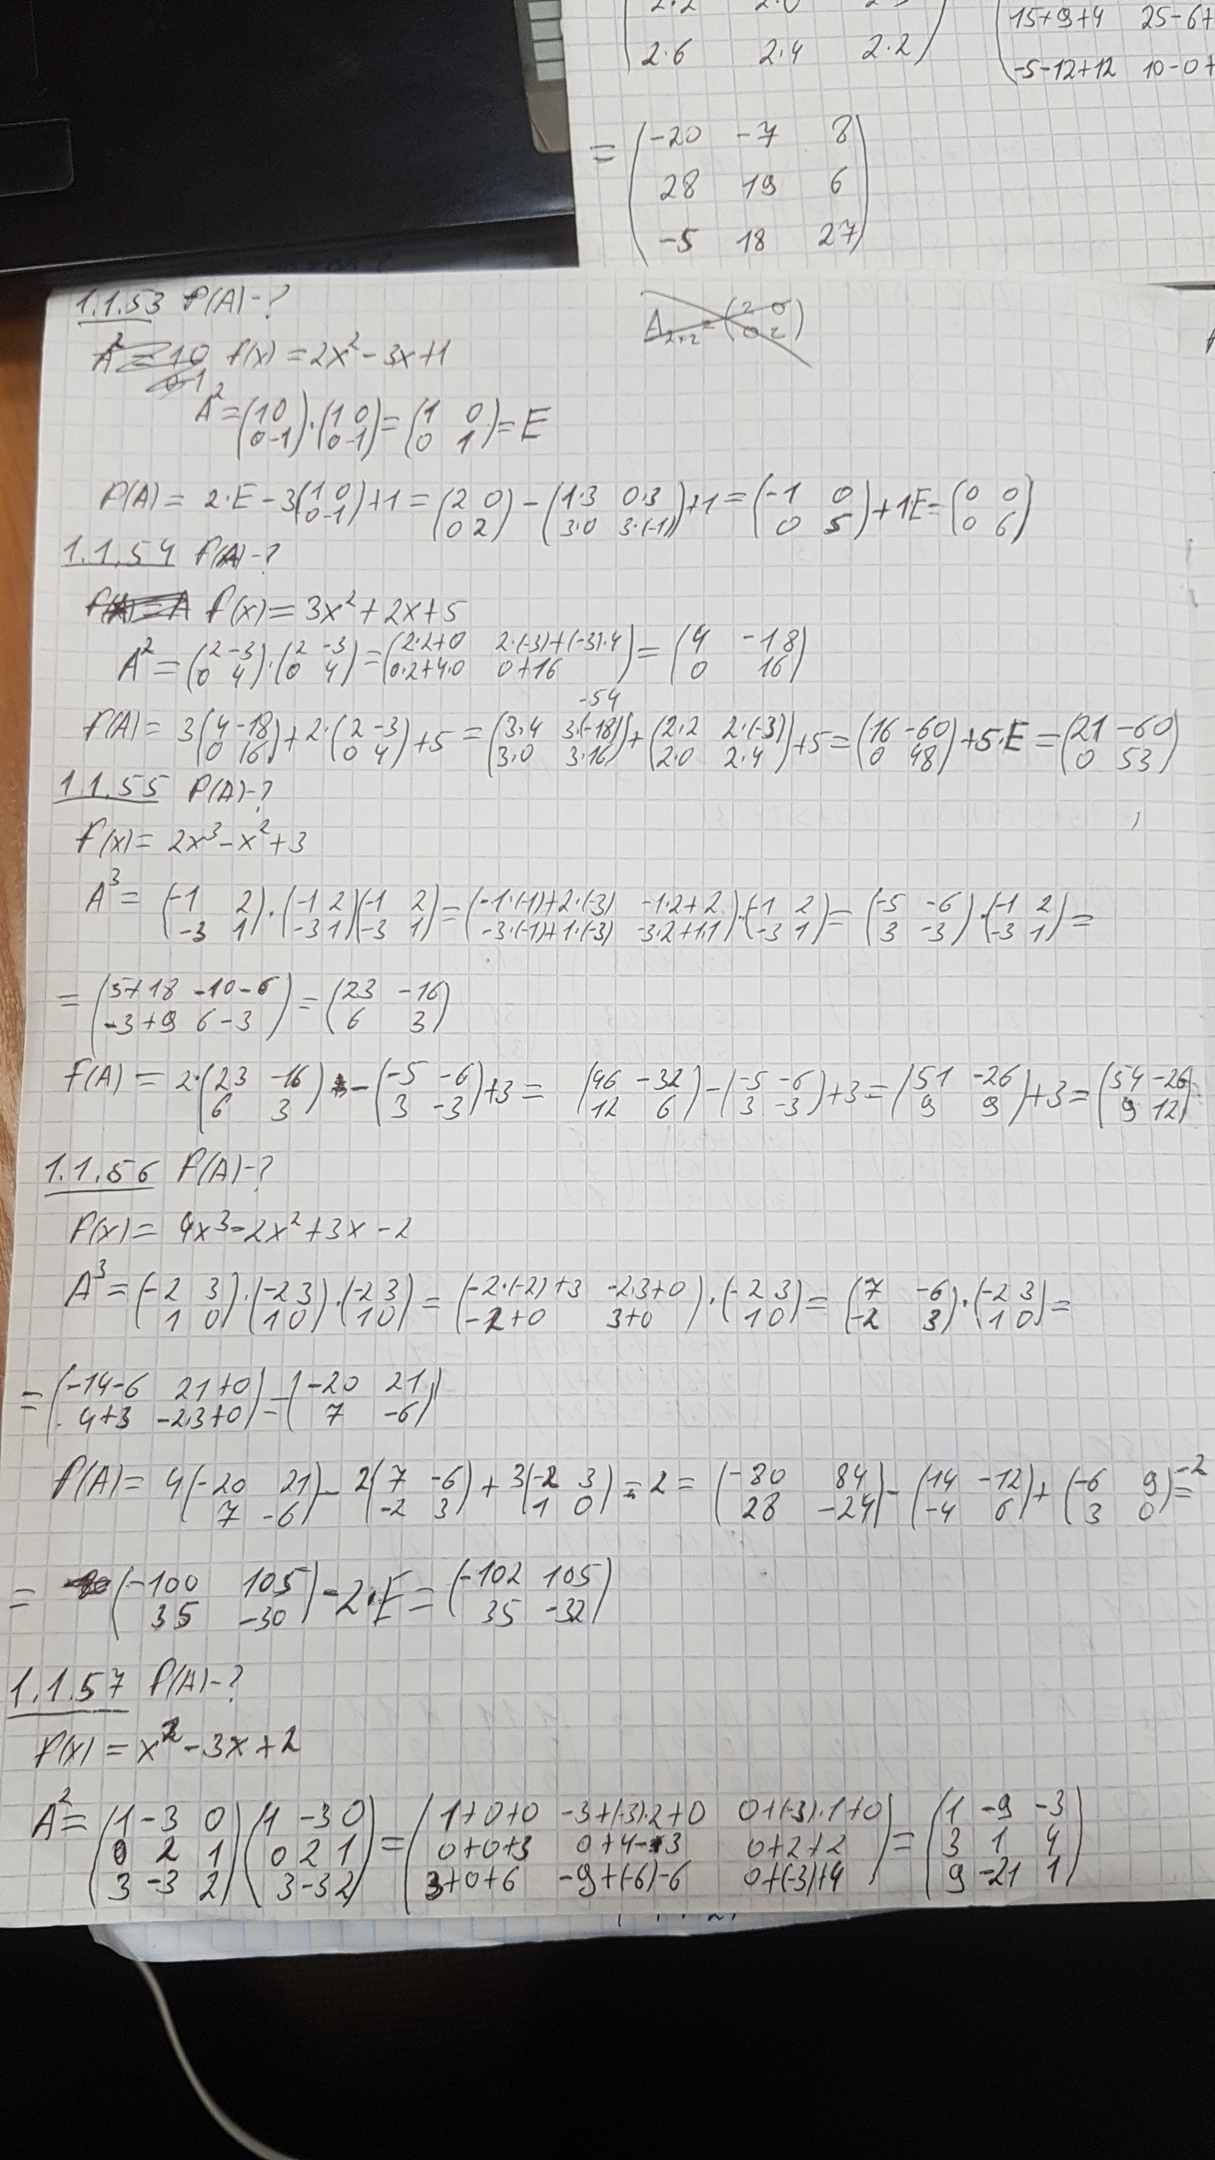 2·2 2·0
15+9+4 25-6+
2·6 2·4 2·2
-5-12+12 10-0+
= (-20 -7 8
28 19 6
-5 18 27)
1.1.53 f(A)-?
f(x) = 2x²-3x+1
A² = (1 0
0 -1)·(1 0
0 -1) = (1 0
0 1) = E
f(A) = 2·E - 3(1 0
0 -1)+1 = (2 0
0 2) - (1·3 0·3
3·0 3·(-1))+1 = (-1 0
0 5)+1E = (0 0
0 6)
1.1.54 f(A)-?
f(x) = 3x²+2x+5
A² = (2 -3
0 4)·(2 -3
0 4) = (2·2+0 2·(-3)+(-3)·4
0·2+4·0 0+16) = (4 -18
0 16)
-54
f(A) = 3(4 -18
0 16)+2·(2 -3
0 4)+5 = (3·4 3·(-18)
3·0 3·16)+(2·2 2·(-3)
2·0 2·4)+5 = (16 -60
0 48)+5·E = (21 -60
0 53)
1.1.55 f(A)-?
f(x) = 2x³-x²+3
A³ = (-1 2
-3 1)·(-1 2
-3 1)(-1 2
-3 1) = (-1·(-1)+2·(-3) -1·2+2
-3·(-1)+1·(-3) -3·2+1·1)·(-1 2
-3 1) = (-5 -6
3 -3)·(-1 2
-3 1) =
= (5+18 -10-6
-3+9 6-3) = (23 -16
6 3)
f(A) = 2·(23 -16
6 3) - (-5 -6
3 -3)+3 = (46 -32
12 6)-(-5 -6
3 -3)+3 = (51 -26
9 9)+3 = (54 -26
9 12)
1.1.56 f(A)-?
f(x) = 4x³-2x²+3x-2
A³ = (-2 3
1 0)·(-2 3
1 0)·(-2 3
1 0) = (-2·(-2)+3 -2·3+0
-2+0 3+0)·(-2 3
1 0) = (7 -6
-2 3)·(-2 3
1 0) =
= (-14-6 21+0
4+3 -2·3+0) = (-20 21
7 -6)
f(A) = 4(-20 21
7 -6) - 2(7 -6
-2 3) + 3(-2 3
1 0) - 2 = (-80 84
28 -24) - (14 -12
-4 6) + (-6 9
3 0) -2 =
= (-100 105
35 -30) - 2·E = (-102 105
35 -32)
1.1.57 f(A)-?
f(x) = x²-3x+2
A² = (1 -3 0
0 2 1
3 -3 2)(1 -3 0
0 2 1
3 -3 2) = (1+0+0 -3+(-3)·2+0 0+(-3)·1+0
0+0+3 0+4-3 0+2+2
3+0+6 -9+(-6)-6 0+(-3)+4) = (1 -9 -3
3 1 4
9 -21 1)